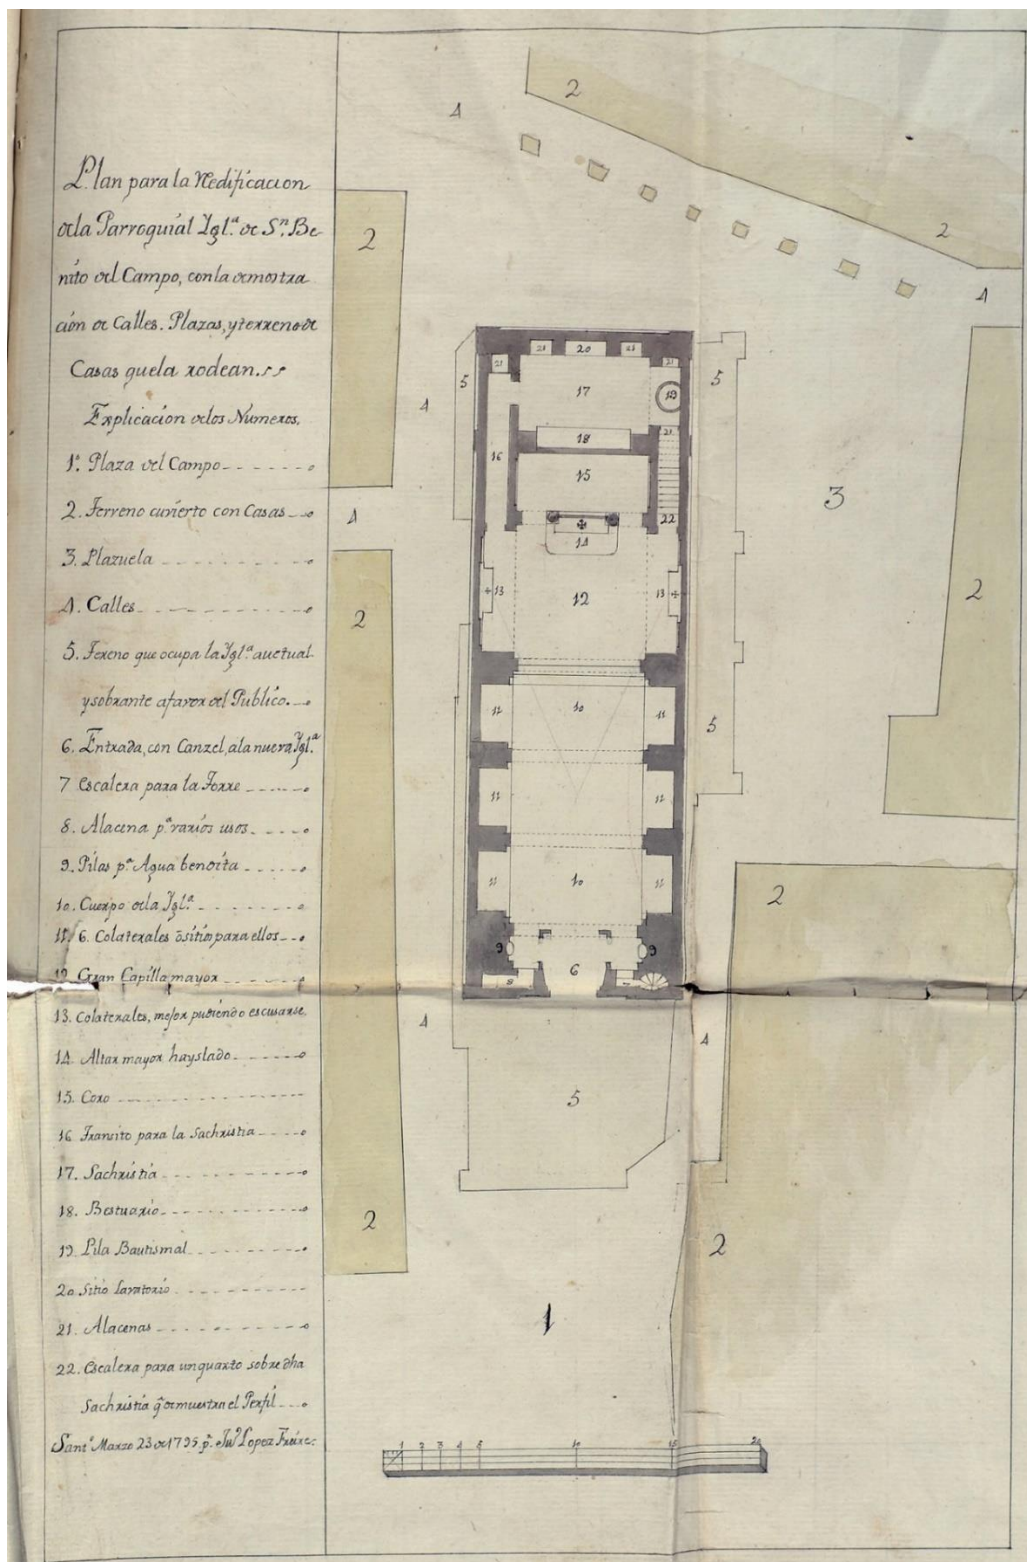 Plan para la Redificacion
dela Parroquial Ygl.ª de S.n Be-
nito del Campo, con la demostra
ción de Calles. Plazas, y terreno de
Casas que la rodean.
Explicacion delos Números.
1.ª Plaza del Campo
2. Terreno cuvierto con Casas
3. Plazuela
4. Calles
5. Tereno que ocupa la Ygl.ª auctual
y sobrante afavor del Público.
6. Entrada, con Canzel, ala nueva Ygl.ª
7 Escalera para la Torre
8. Alacena p.ª varios usos
9. Pilas p.ª Agua bendita
10. Cuerpo dela Ygl.ª
11. 6. Colaterales ó sitios para ellos
12 Gran Capilla mayor
13. Colaterales, mejor pudiendo escusarse
14. Altar mayor hayslado
15. Coro
16 Transito para la Sachristia
17. Sachristía
18. Bestuario
19. Pila Bautismal
20 Sitio Lavatorio
21. Alacenas
22. Escalera para un quarto sobre dha
Sachristía q.e demuestra el Perfil
Sant.o Marzo 23 de 1795 p.r Lopez Freire
2
4
2
2
4
2
5
21
20
21
21
21
5
17
19
4
18
21
16
3
15
4
22
14
2
13
12
13
2
11
10
11
5
11
11
11
10
11
2
9
9
6
8
7
4
4
5
2
2
1
1
2
3
4
5
10
15
20